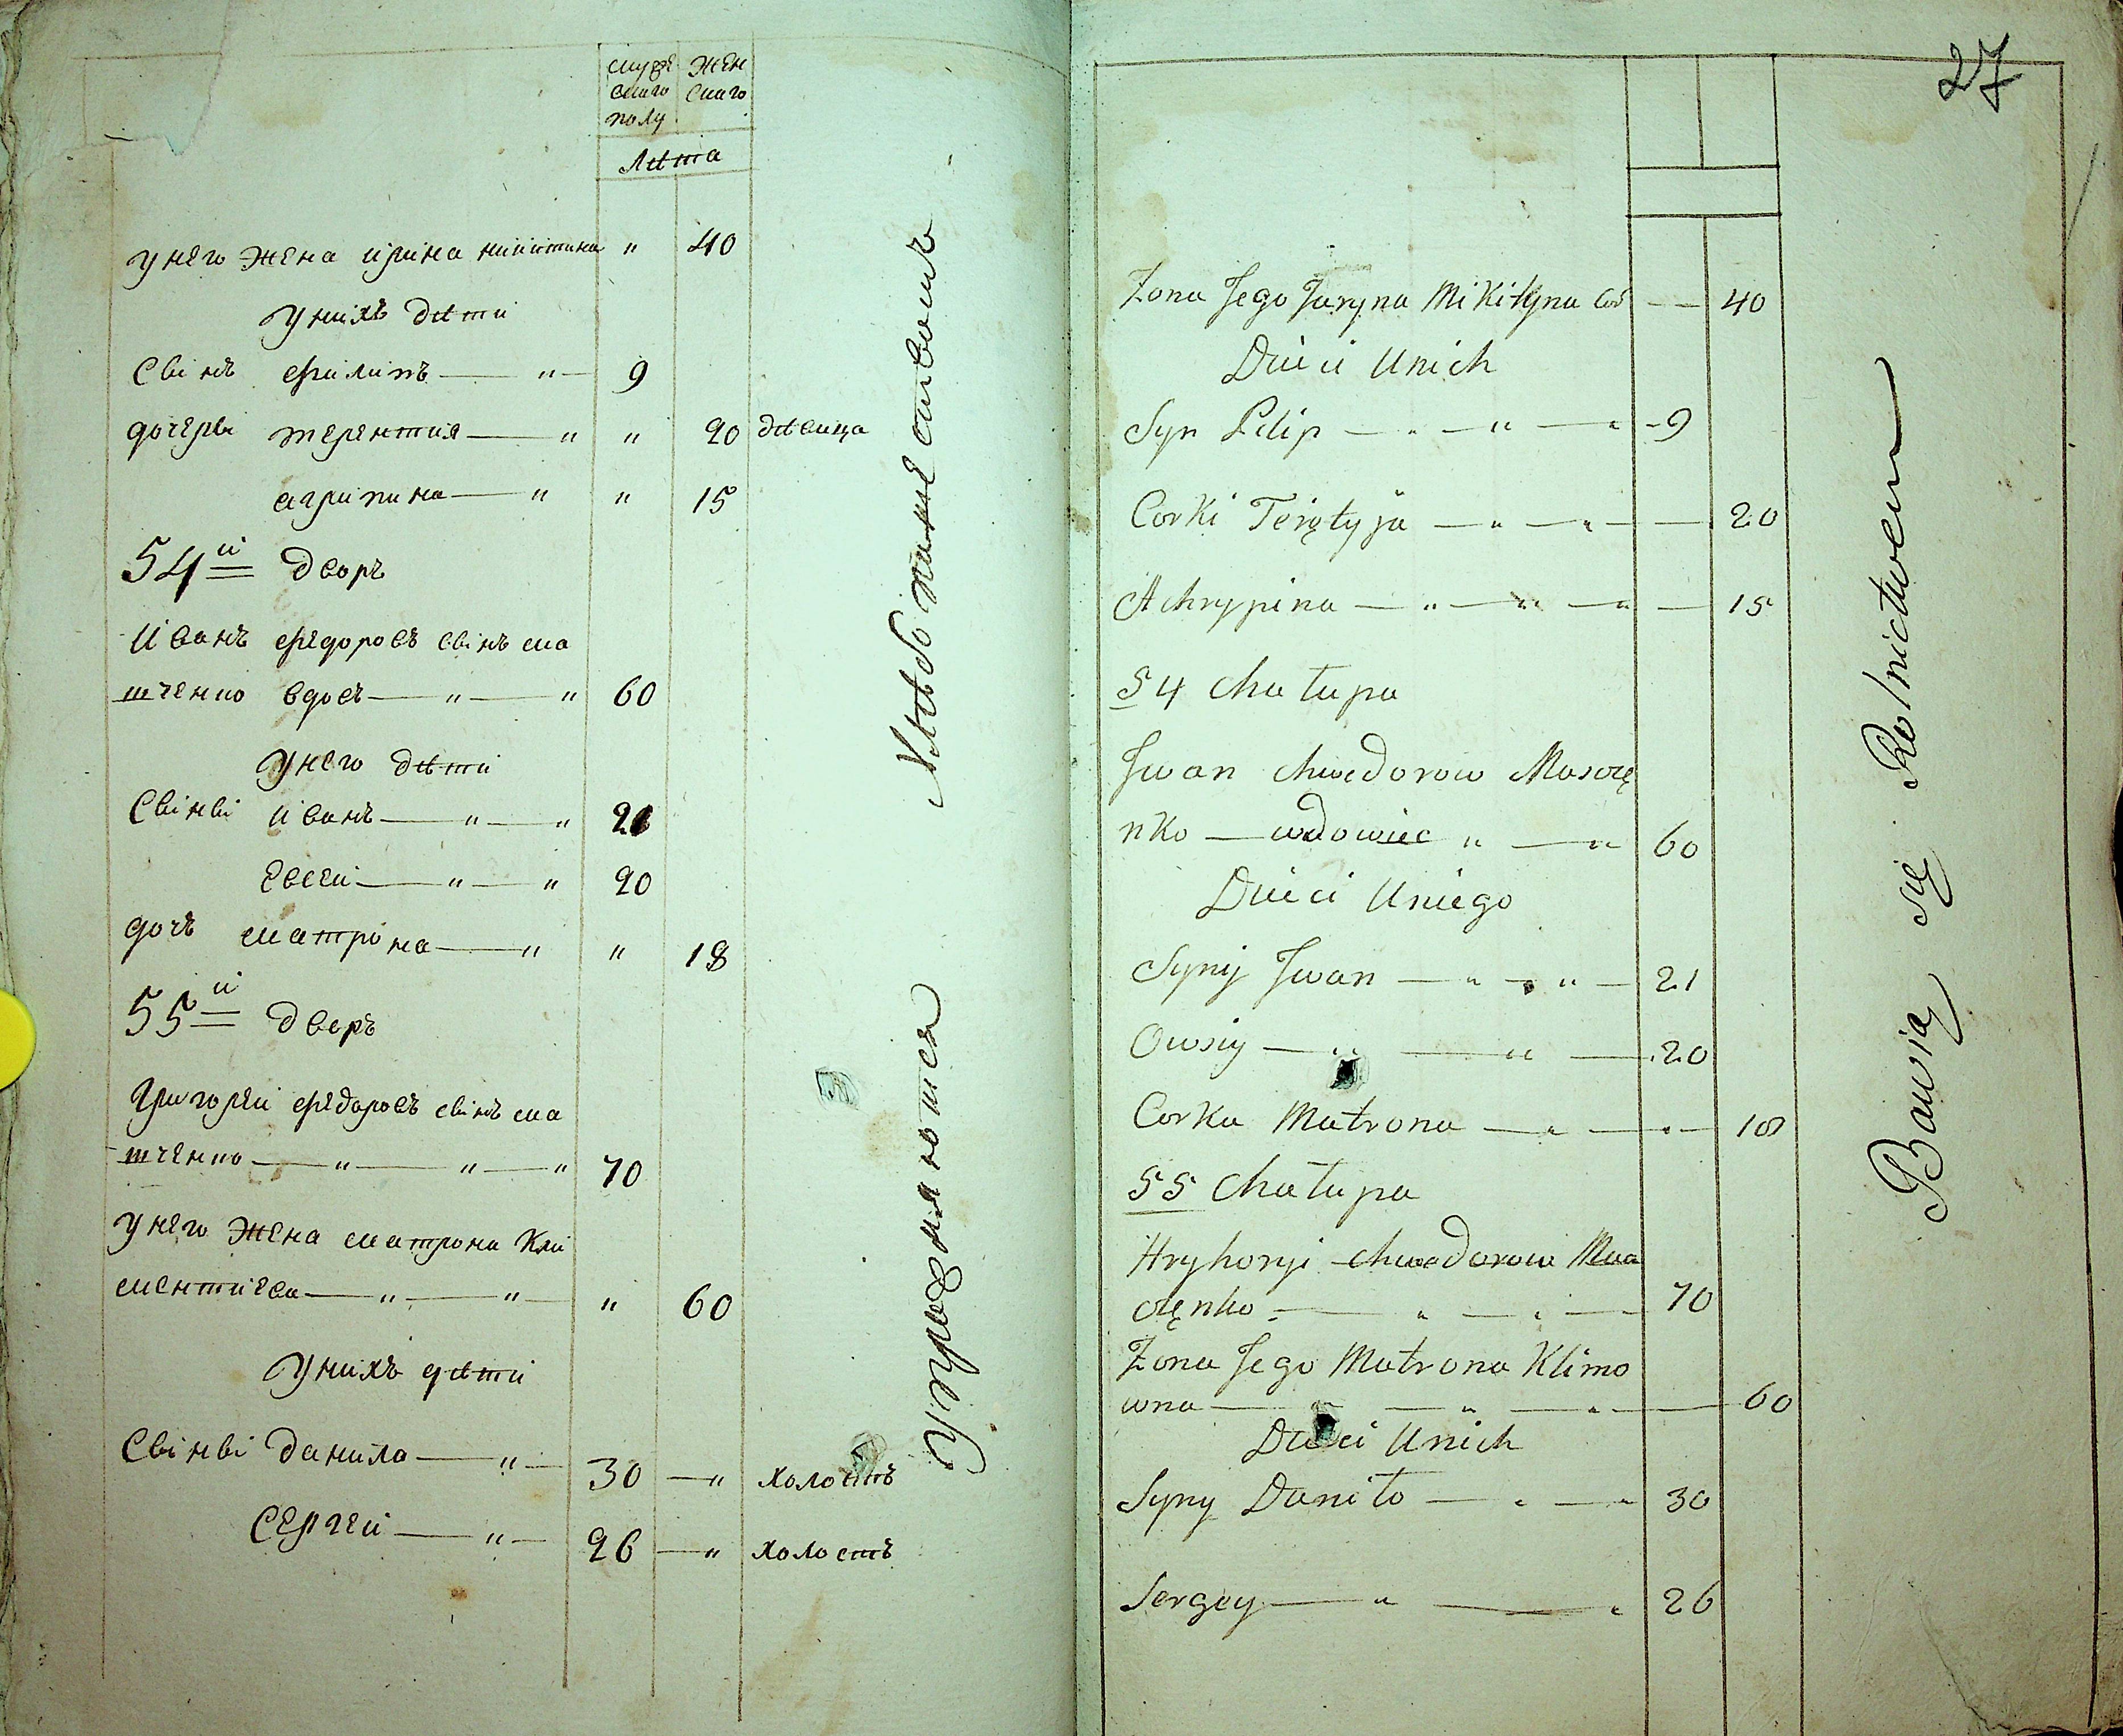 мужескаго полу
женскаго
лѣта
у него жена ирина микитина " 40
у нихъ дѣти
сынъ филипъ — " — 9
дочери терентия — " " 20 дѣвица
агрипина — " " 15
54й дворъ
иванъ федоровъ сынъ ма
тченко вдовъ — " — " 60
у него дѣти
сыны иванъ — " — " 21
евсей — " — " 20
дочь матрона — " " 18
55й дворъ
григорей федоровъ сынъ ма
тченко — " — " — " 70
у него жена матрона кли
ментиева — " — " — " 60
у нихъ дѣти
сыны данило — " — 30 — " холостъ
сергей — " — 26 — " холостъ
упражняются хлѣбопашеством
27
Żona Jego Jaryna Mikityna — — 40
Dzieci Unich
Syn Pilip — " — " — " - 9
Corki Terętyja — " — " — — 20
Achrypina — " — " — " — 15
54 Chałupa
Jwan Chwedorow Masczę
nko — wdowiec " — " 60
Dzieci Uniego
Syny Jwan — " — " — 21
Owsiy — " — " — 20
Corka Matrona — " — " — 18
55 Chałupa
Hryhoryi Chwedorow Maa
częnko — " — " — 70
Żona Jego Matrona Klimo
wna — " — " — " — 60
Dzieci Unich
Syny Daniło — " — " 30
Sergey — " — " 26
Bawią się Rolnictwem